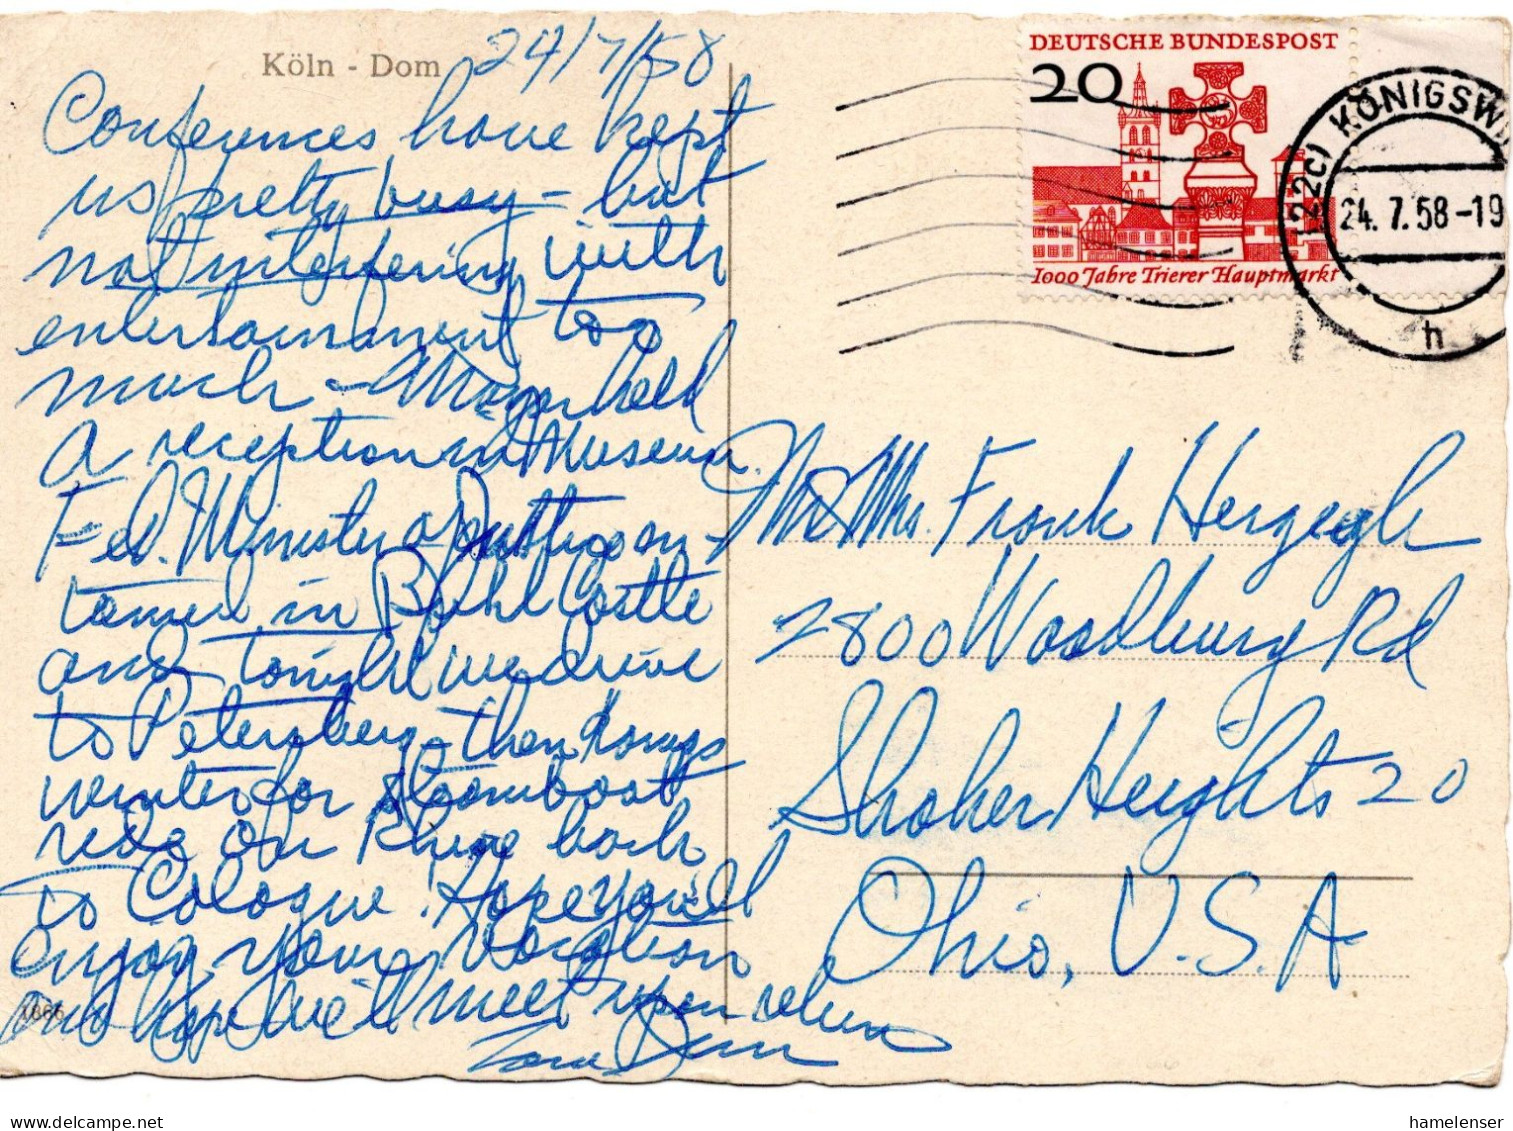 Köln - Dom
24/7/58
Conferences have kept
us pretty busy - but
not interfering with
entertainment too
much - Mayor held
a reception in Museum.
Fed. Minister of enter-
tained in Brühl Castle
and tonight we drive
to Petersberg - then Königs
winter for steamboat
ride on Rhine back
to Cologne. Hope you'll
enjoy your vacation
and hope we'll meet upon return
Love
1866
DEUTSCHE BUNDESPOST
20
1000 Jahre Trierer Hauptmarkt
(22c) KÖNIGSWI
24. 7. 58-19
h
Mr & Mrs. Frank
2800 Woodbury Rd
Shaker Heights 20
Ohio, U.S.A
hamelenser